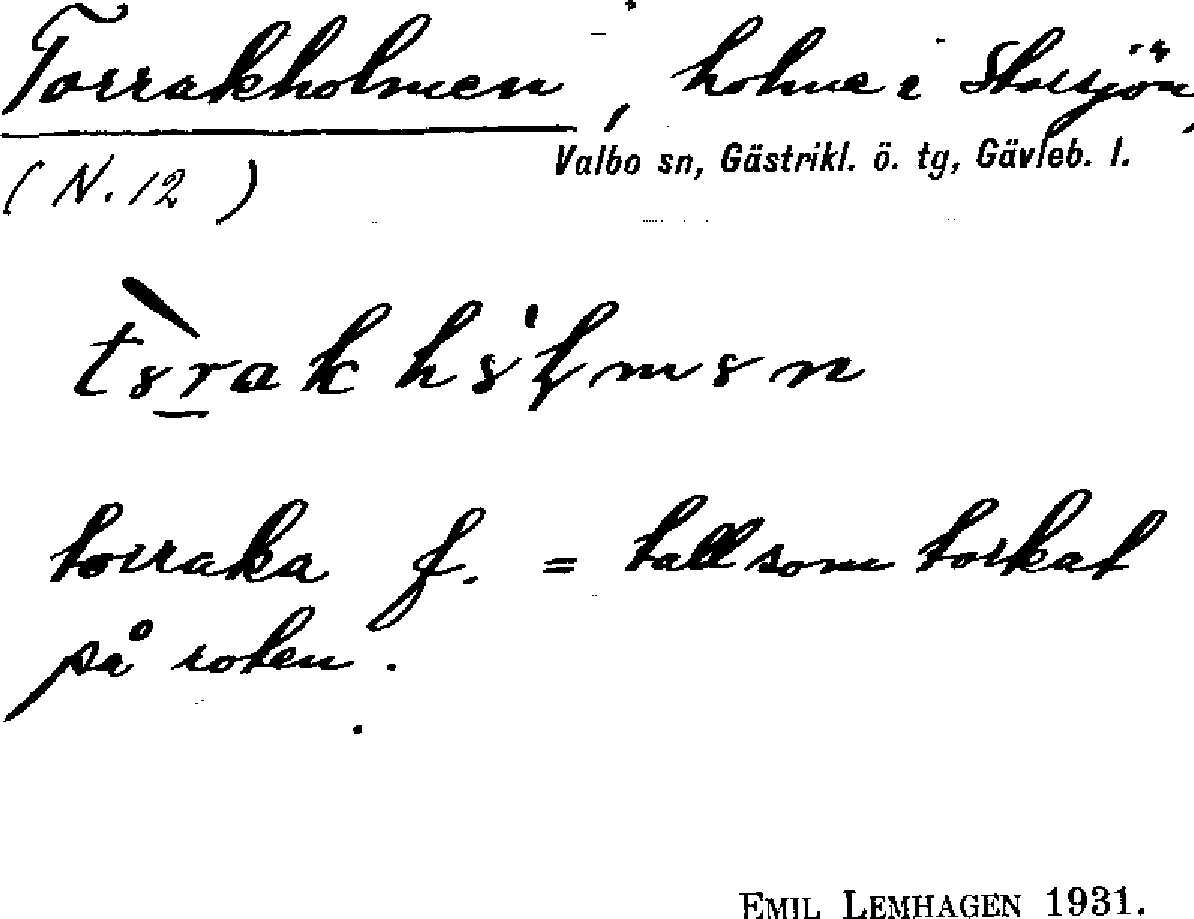 Torrakholmen, holme i Storsjön,
Valbo sn, Gästrikl. ö. tg, Gävleb. l.
(N. 12)
torraka f. = tall som torkat
på roten.
EMIL LEMHAGEN 1931.